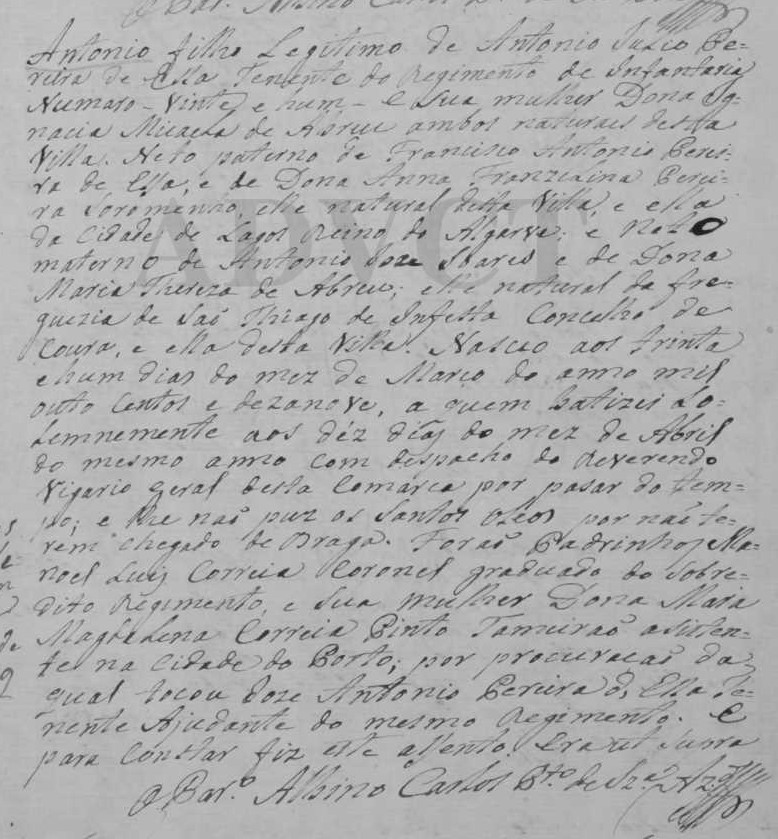 O Bar.º Albino Carlos
Antonio filho Legitimo de Antonio Julio Pe-
reira de Essa Tenente do Regimento de Infantaria
Numaro - Vinte e hum - e sua mulher Dona Ig-
nacia Micaela de Abreu ambos naturais desta
Villa. Neto paterno de Francisco Antonio Perei-
ra de Essa, e de Dona Anna Franziscina Perei-
ra Soromenho, elle natural desta Villa, e ella
da Cidade de Lagos Reino do Algarve; e Neto
materno de Antonio Joze Soares e de Dona
Maria Thereza de Abreu; elle natural da fre-
guezia de São Thiago de Infesta Concelho de
Coura, e ella desta Villa. Nasceo aos trinta
e hum dias do mez de Março do anno mil
outo centos e dezanove, a quem batizei so-
lemnemente aos déz dias do mez de Abril
do mesmo anno com despacho do Reverendo
Vigario geral desta Comarca por pasar do tem-
po; e lhe naõ puz os Santos oleos por naõ te-
rem chegado de Braga. Foraõ Padrinhos Ma-
noel Luis Correia Coronel graduado do sobre-
dito Regimento, e sua mulher Dona Maria
Magdalena Correia Pinto Tameiraõ asisten-
te na Cidade do Porto; por procuracaõ da
qual tocou Joze Antonio Pereira d, Essa Te-
nente Ajudante do mesmo Regimento. E
para constar fiz este assento. Era ut supra
O Bar.º Albino Carlos B.to de Sz.ª
ADVCT